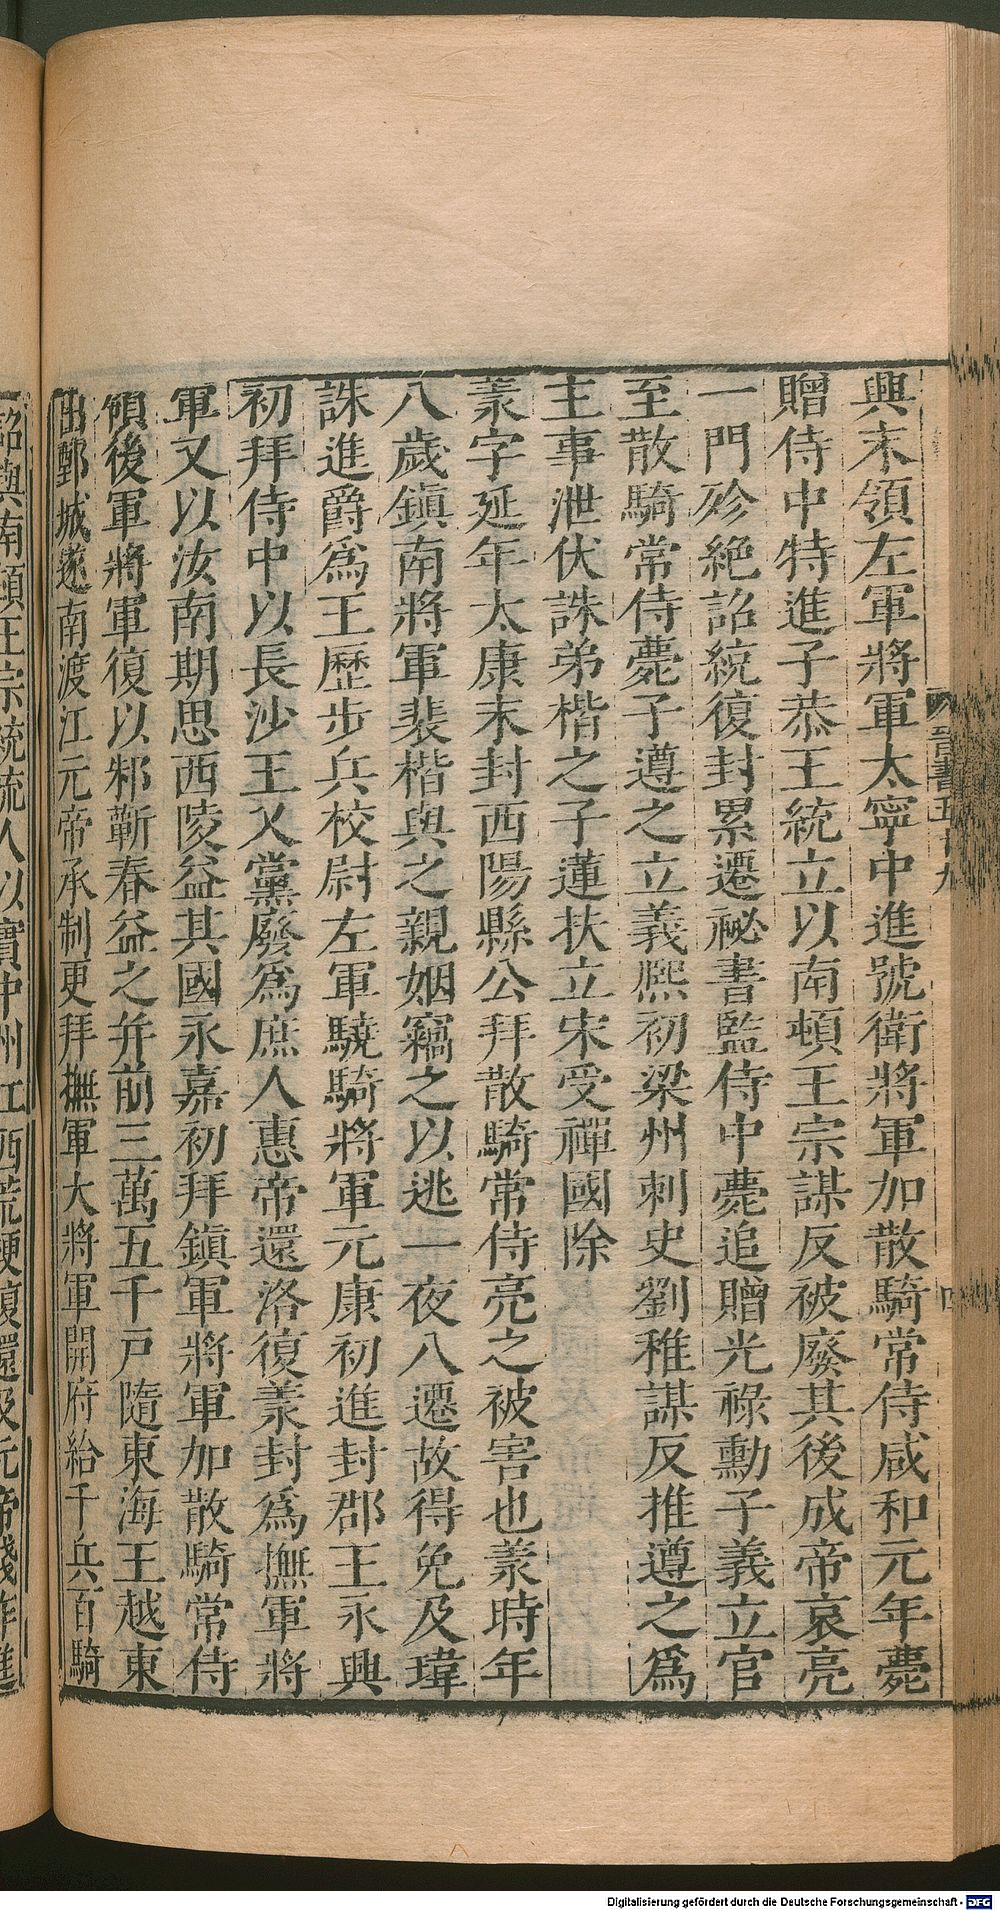 興末領左軍將軍太寧中進號衛將軍加散騎常侍咸和元年薨
贈侍中特進子恭王統立以南頓王宗謀反被廢其後成帝哀亮
一門殄絶詔統復封累遷祕書監侍中薨追贈光祿勳子義立官
至散騎常侍薨子遵之立義熙初梁州刺史劉稚謀反推遵之爲
主事泄伏誅弟楷之子蓮扶立宋受禪國除
羕字延年太康末封西陽縣公拜散騎常侍亮之被害也羕時年
八歲鎮南將軍裴楷與之親姻竊之以逃一夜八遷故得免及瑋
誅進爵爲王歷步兵校尉左軍驍騎將軍元康初進封郡王永興
初拜侍中以長沙王乂黨廢爲庶人惠帝還洛復羕封爲撫軍將
軍又以汝南期思西陵益其國永嘉初拜鎮軍將軍加散騎常侍
領後軍將軍復以邾蘄春益之并前三萬五千戸隨東海王越東
出鄄城遂南渡江元帝承制更拜撫軍大將軍開府給千兵百騎
詔與南頓王宗統流人以實中州江西荒梗復還及元帝踐祚進
晉書五十九
四
Digitalisierung gefördert durch die Deutsche Forschungsgemeinschaft - DFG